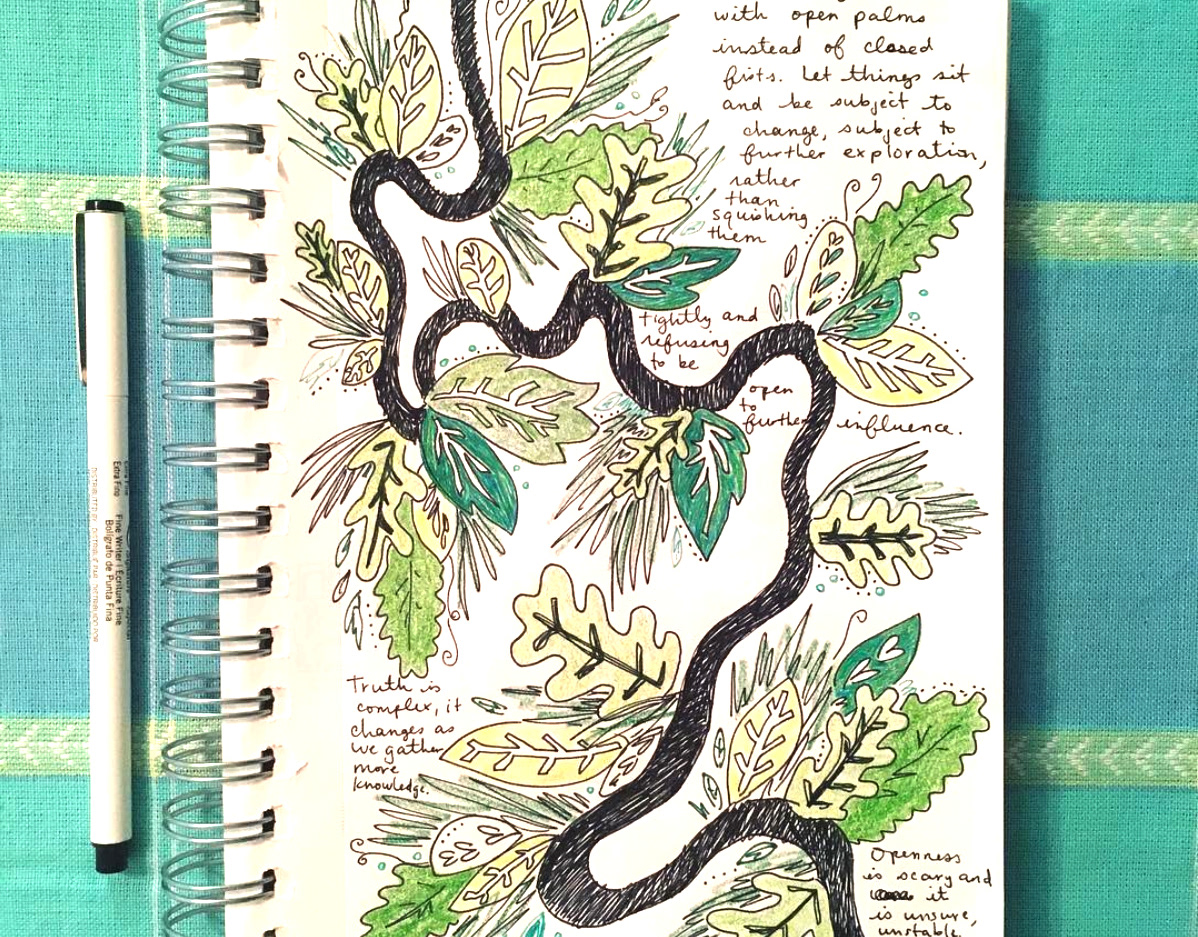 with open palms
instead of closed
fists. Let things sit
and be subject to
change, subject to
further exploration,
rather
than
squishing
them
tightly and
refusing
to be
open
to
further influence.
Truth is
complex, it
changes as
we gather
more
knowledge.
Openness
is scary and
it
is unsure,
unstable.
Extra Fine
Fine Writer | Écriture Fine
Bolígrafo de Punta Fina